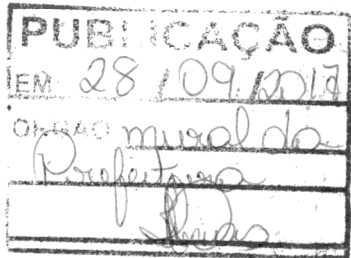 PUBLICAÇÃO
EM 28 / 09 / 2017
ORGÃO mural da
Prefeitura